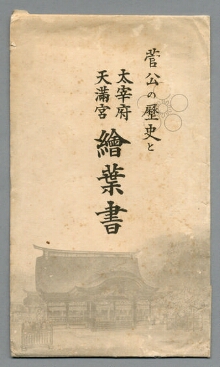 菅公の歴史と
太宰府
天満宮
繪葉書